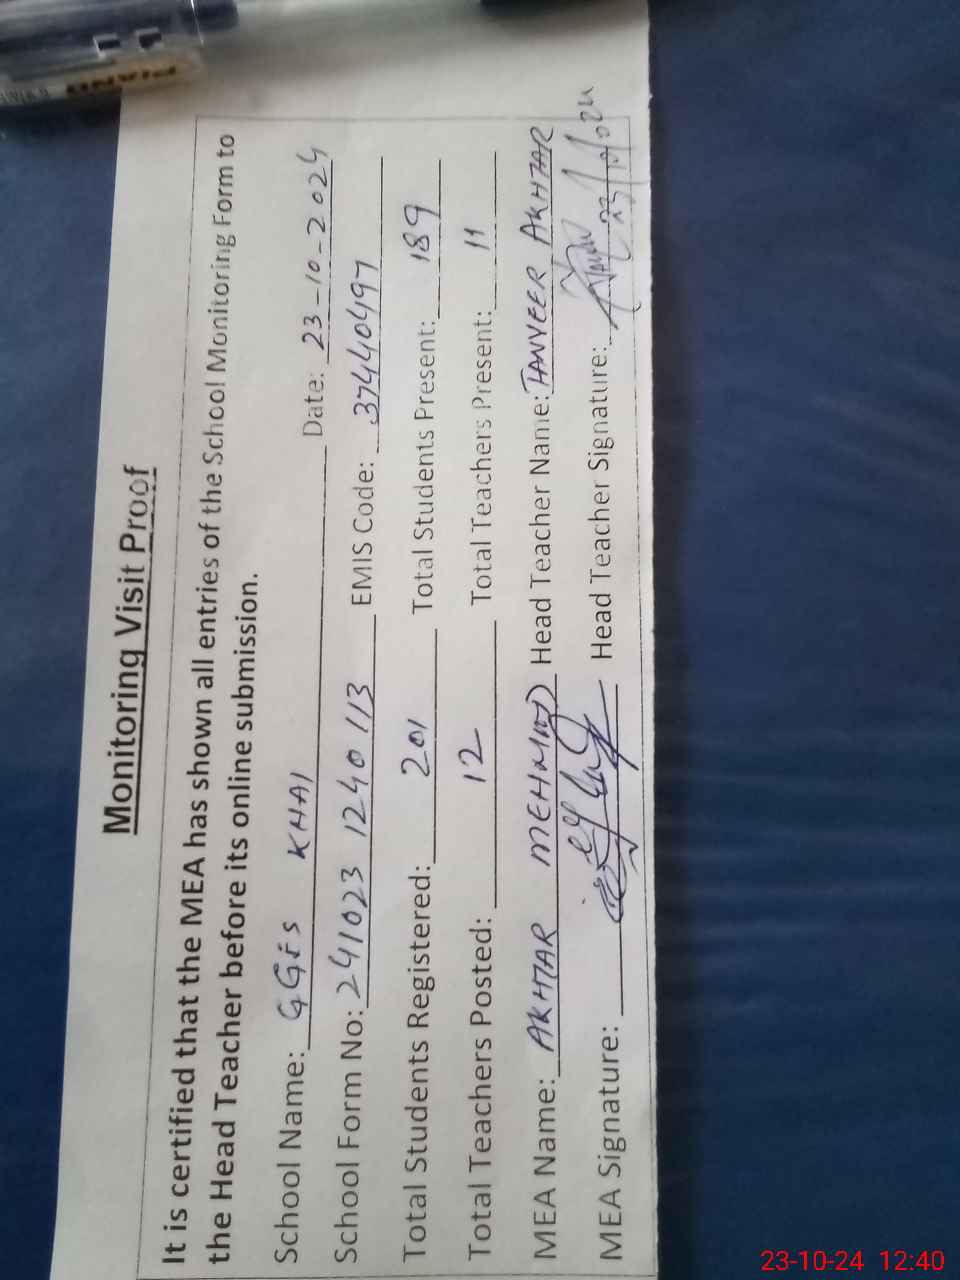 Monitoring Visit Proof
It is certified that the MEA has shown all entries of the School Monitoring Form to
the Head Teacher before its online submission.
School Name: GGES KHAI Date: 23-10-2024
School Form No: 241023 1240113 EMIS Code: 37440497
Total Students Registered: 201 Total Students Present: 189
Total Teachers Posted: 12 Total Teachers Present: 11
MEA Name: AKHTAR MEHMOOD Head Teacher Name: TANVEER AKHTAR
MEA Signature: Head Teacher Signature: 23/10/024
PIANO
23-10-24 12:40